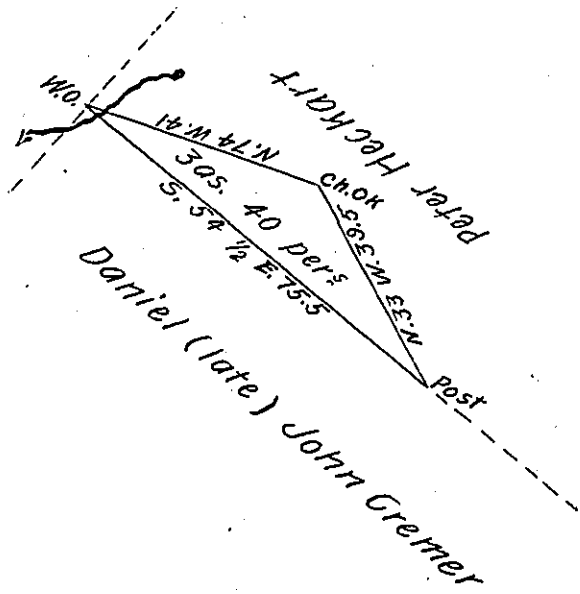 W.O.
Peter Heckart
N.74 W.41
Ch.OK
3as. 40 pers.
N.33 W.39.5
S. 54 1/2 E.75.5
Post
Daniel (late) John Cremer